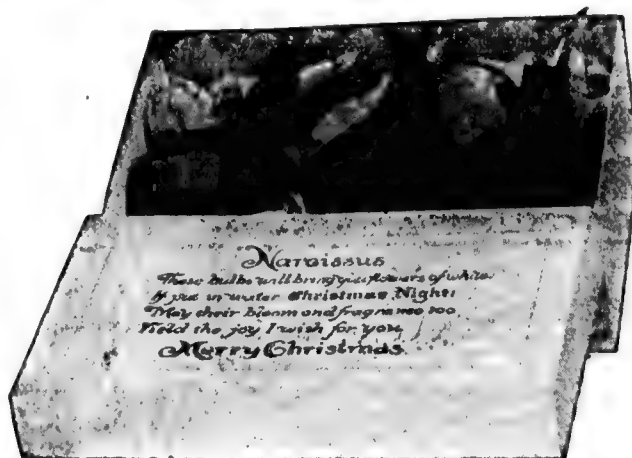 Narcissus
These bulbs will bring you flowers of white
If put in water Christmas Night;
May their bloom and fragrance too
Yield the joy I wish for you
Merry Christmas